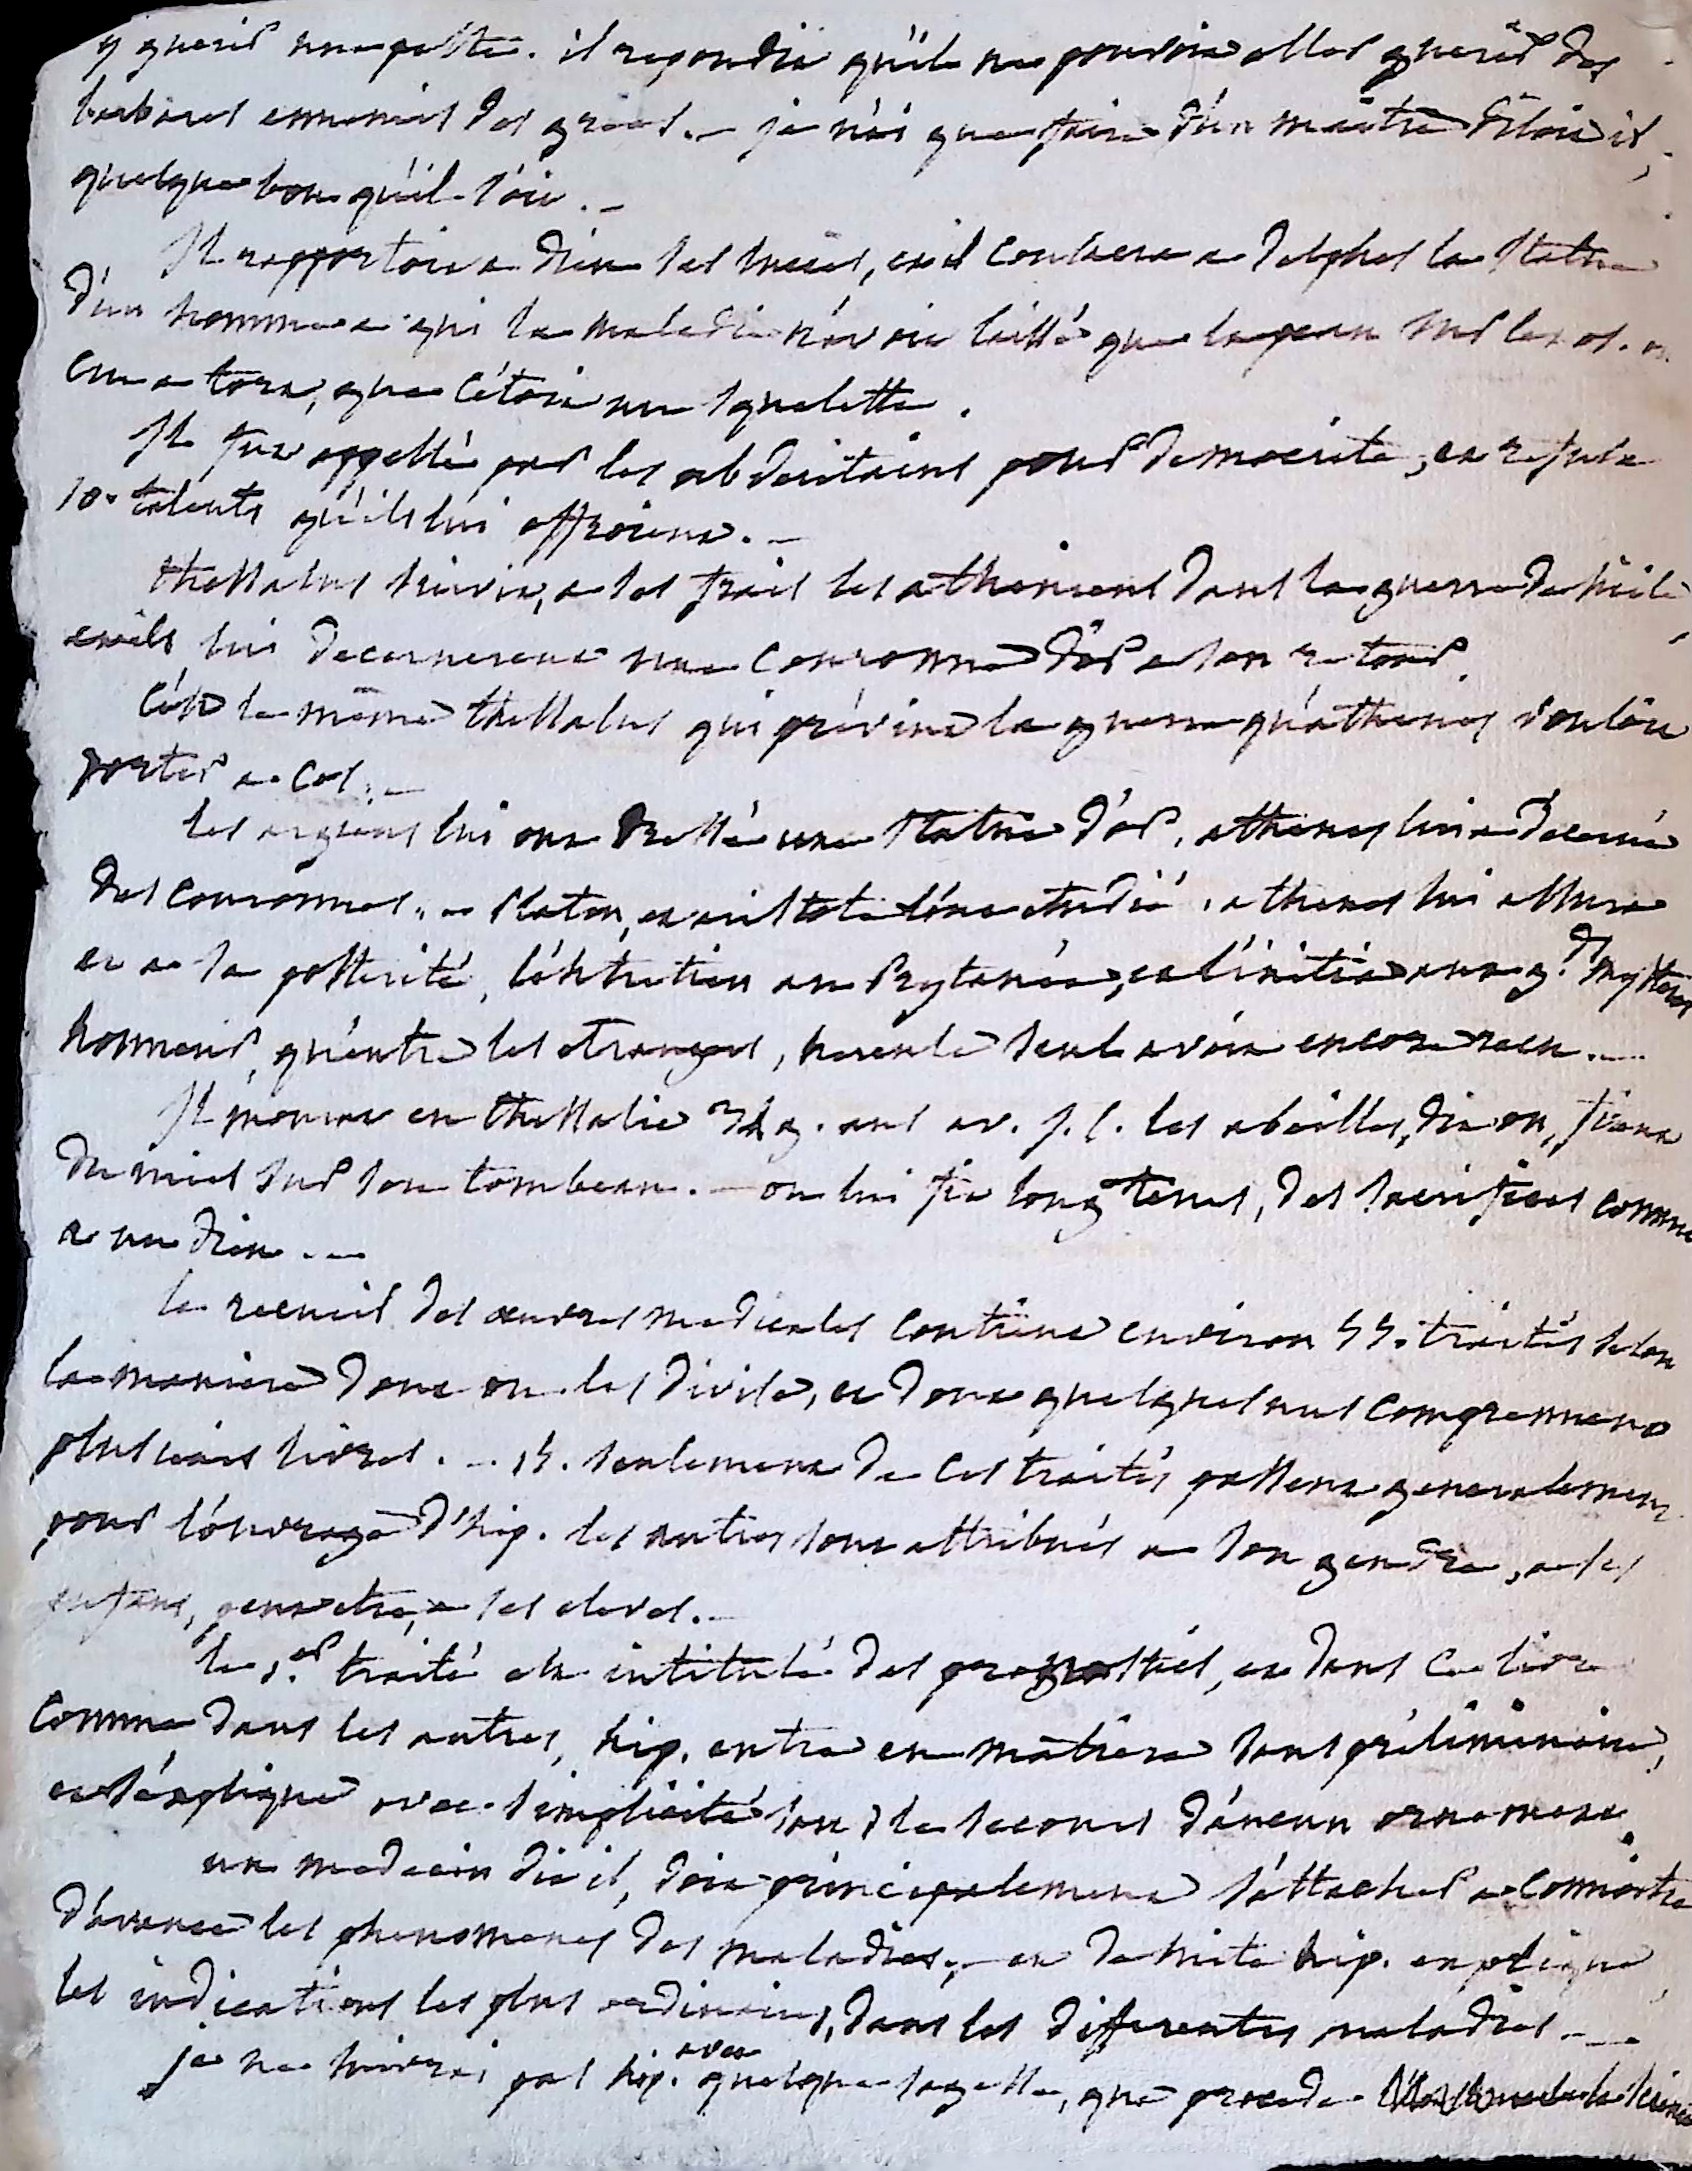 y guerir une peste. il repondit qu'il ne pouvoit aller guerir des
barbares ennemis des grecs. — je n'ai que faire d'un maitre disoit il,
quelque bon qu'il soit. —
Il rapportoit a dieu ses succés, et il consacra a delphes la statue
d'un homme a qui la maladie n'avoit laissé que la peau sur les os. on
crut a tort, que c'étoit un squelette.
Il fut appellé par les abderitains pour democrite, et refusa
10. talents qu'ils lui offroient. —
thessalus suivit, a ses frais les atheniens dans la guerre de sicile
et ils lui decernerent une couronne d'or a son retour.
C'est le même thessalus qui prévint la guerre qu'athenes vouloit
porter a Cos. —
les argiens lui ont dressé une statue d'or. athenes lui a decerné
des couronnes. — Platon, et aristote l'ont etudié. athenes lui assura
et a sa posterité, l'entretien au Prytanée, et l'initia aux gds mysteres
honneur, qu'entre les etrangers, hercule seul avoit encore recu. —
Il mourut en thessalie ans av. J. C. les abeilles, dit on, firent
du miel sur son tombeau. — on lui fit long tems, des sacrifices comme
a un dieu. —
le recueil des œuvres medicales contient environ 55. traités selon
la maniere dont on les divise, et dont quelques uns comprennent
plusieurs livres. — 15. seulement de ces traités passent generalement
pour l'ouvrage d'hip. les autres sont attribués a son gendre, a ses
enfans, peut etre, a ses eleves. —
le 1.er traité est intitulé des prognostics, et dans ce livre
comme dans les autres, hip. entre en matiere sans préliminaire,
et s'explique avec simplicité sans le secours d'aucun ornement.
un medecin dit il, doit principalement s'attacher a connoitre
d'avance les phenomenes des maladies. — et de suite hip. explique
les indications les plus ordinaires, dans les differentes maladies. —
je ne suivrai pas hip. avec quelque sagesse, que procede la science